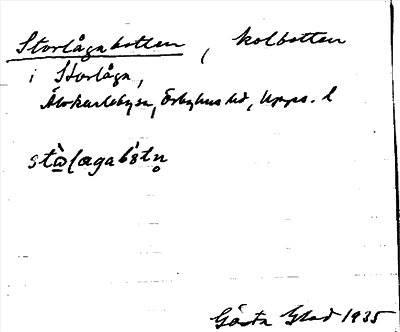 Storlågabotten, kolbotten
i Storlåga,
Älvkarlebysn, Örbyhus hd, Upps. l
Gösta Glad 1935